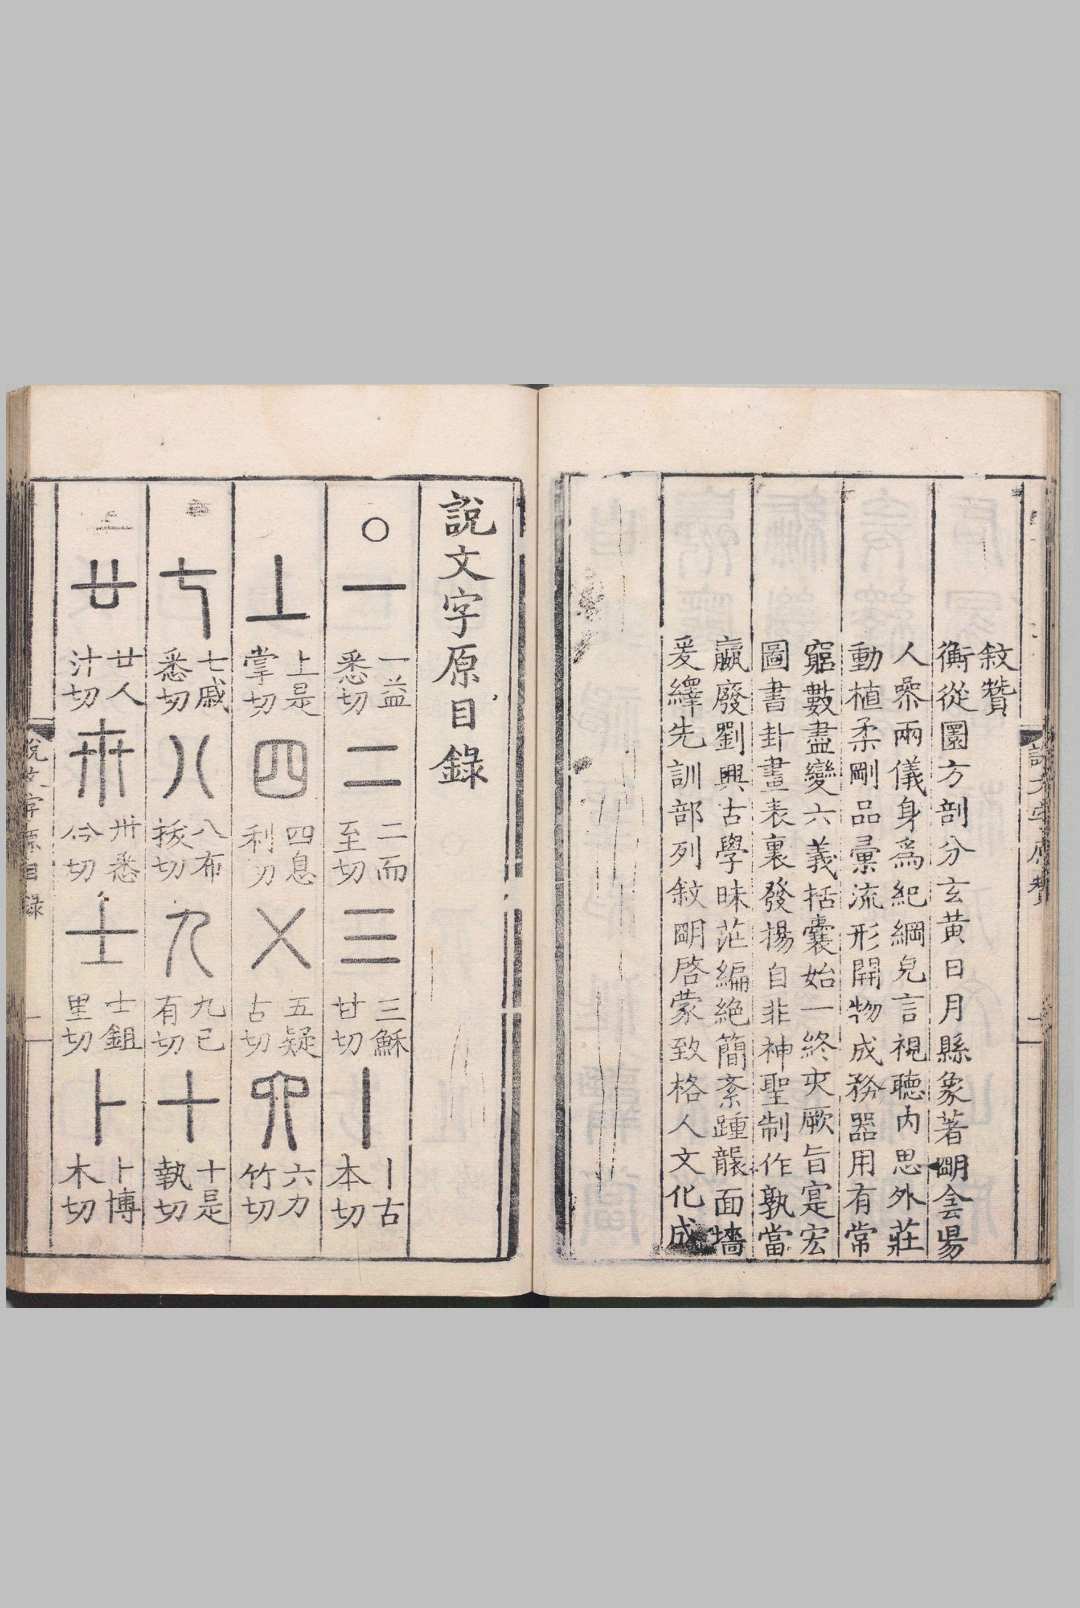 說文字原贊 一
敘贊
衡從圜方剖分玄黃日月縣象著朙侌昜
人參兩儀身爲紀綱皃言視聽內思外莊
動植柔剛品彙流形開物成務器用有常
窮數盡變六義括囊始一終亥厥旨寔宏
圖書卦畫表裏發揚自非神聖制作孰當
嬴廢劉興古學昧茫編絕簡紊踵襲面墻
爰繹先訓部列敘朙啓蒙致格人文化成
說文字原目錄
○一 一益悉切 二 二而至切 三 三穌甘切 丨 丨古本切
丄 上是掌切 四 四息利切 㐅 五疑古切 六 六力竹切
七 七戚悉切 八 八布拔切 九 九已有切 十 十是執切
廿 廿人汁切 卅 卅悉今切 士 士鉏里切 卜 卜博木切
說文字原目錄 一